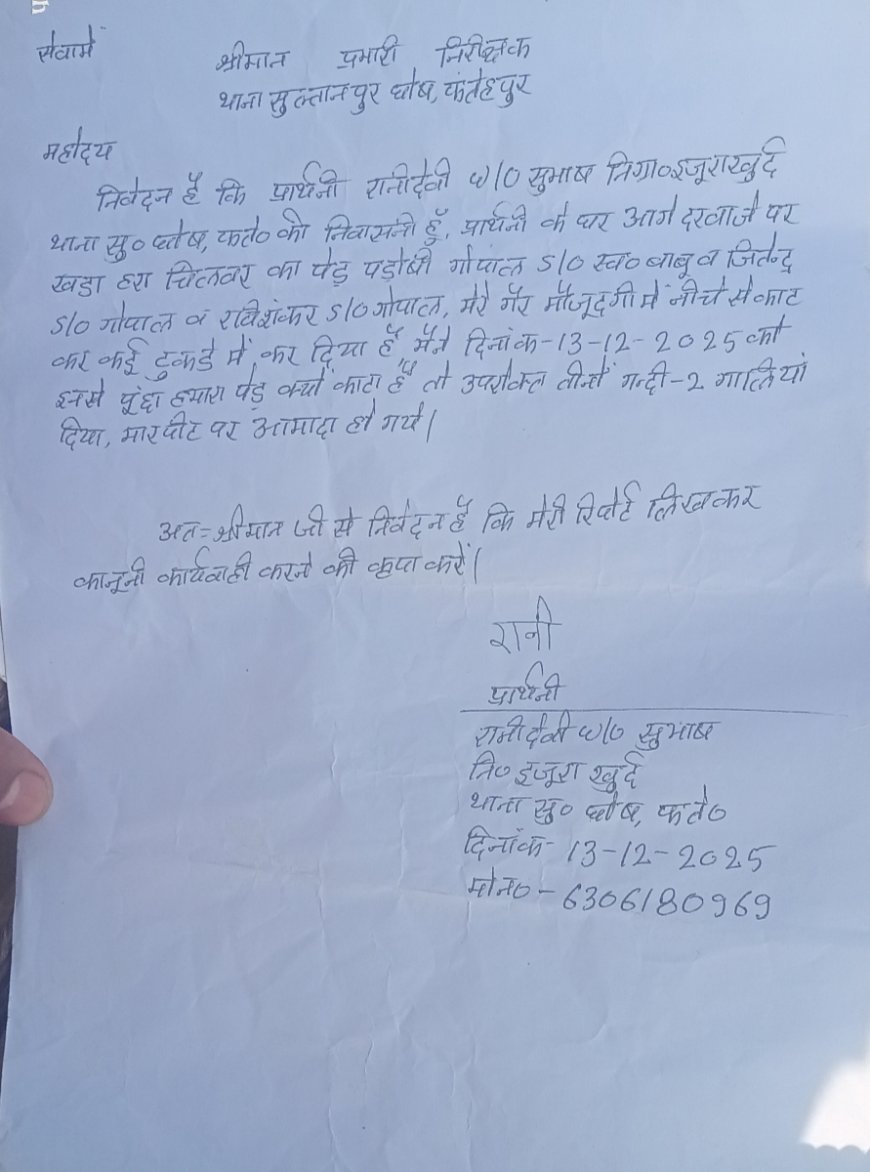 सेवामें
श्रीमान प्रभारी निरीक्षक
थाना सुल्तानपुर घोष, फतेहपुर
महोदय
निवेदन है कि प्रार्थनी रानीदेवी w/o सुभाष निग्रा० इजूराखुर्द
थाना सु० घोष, फते० की निवासनी हूँ, प्रार्थनी के घर आगे दरवाजे पर
खडा हरा चिलवर का पेड़ पड़ोषी गोपाल S/o स्व० बाबू व जितेन्द्र
S/o गोपाल व रविशंकर S/o गोपाल, मेरे गैर मौजूदगी में नीचे से काट
कर कई टुकडे में कर दिया है, मैंने दिनांक-13-12-2025 को
इनसे पूंछा हमारा पेड़ क्यों काटा है तो उपरोक्त तीनों गन्दी-2 गालियां
दिया, मारपीट पर आमादा हो गये।
अतः श्रीमान जी से निवेदन है कि मेरी रिपोर्ट लिखकर
कानूनी कार्यवाही करने की कृपा करें।
रानी
प्रार्थनी
रानीदेवी w/o सुभाष
नि० इजूरा खुर्द
थाना सु० घोष, फते०
दिनांक- 13-12-2025
मोन०- 6306180969